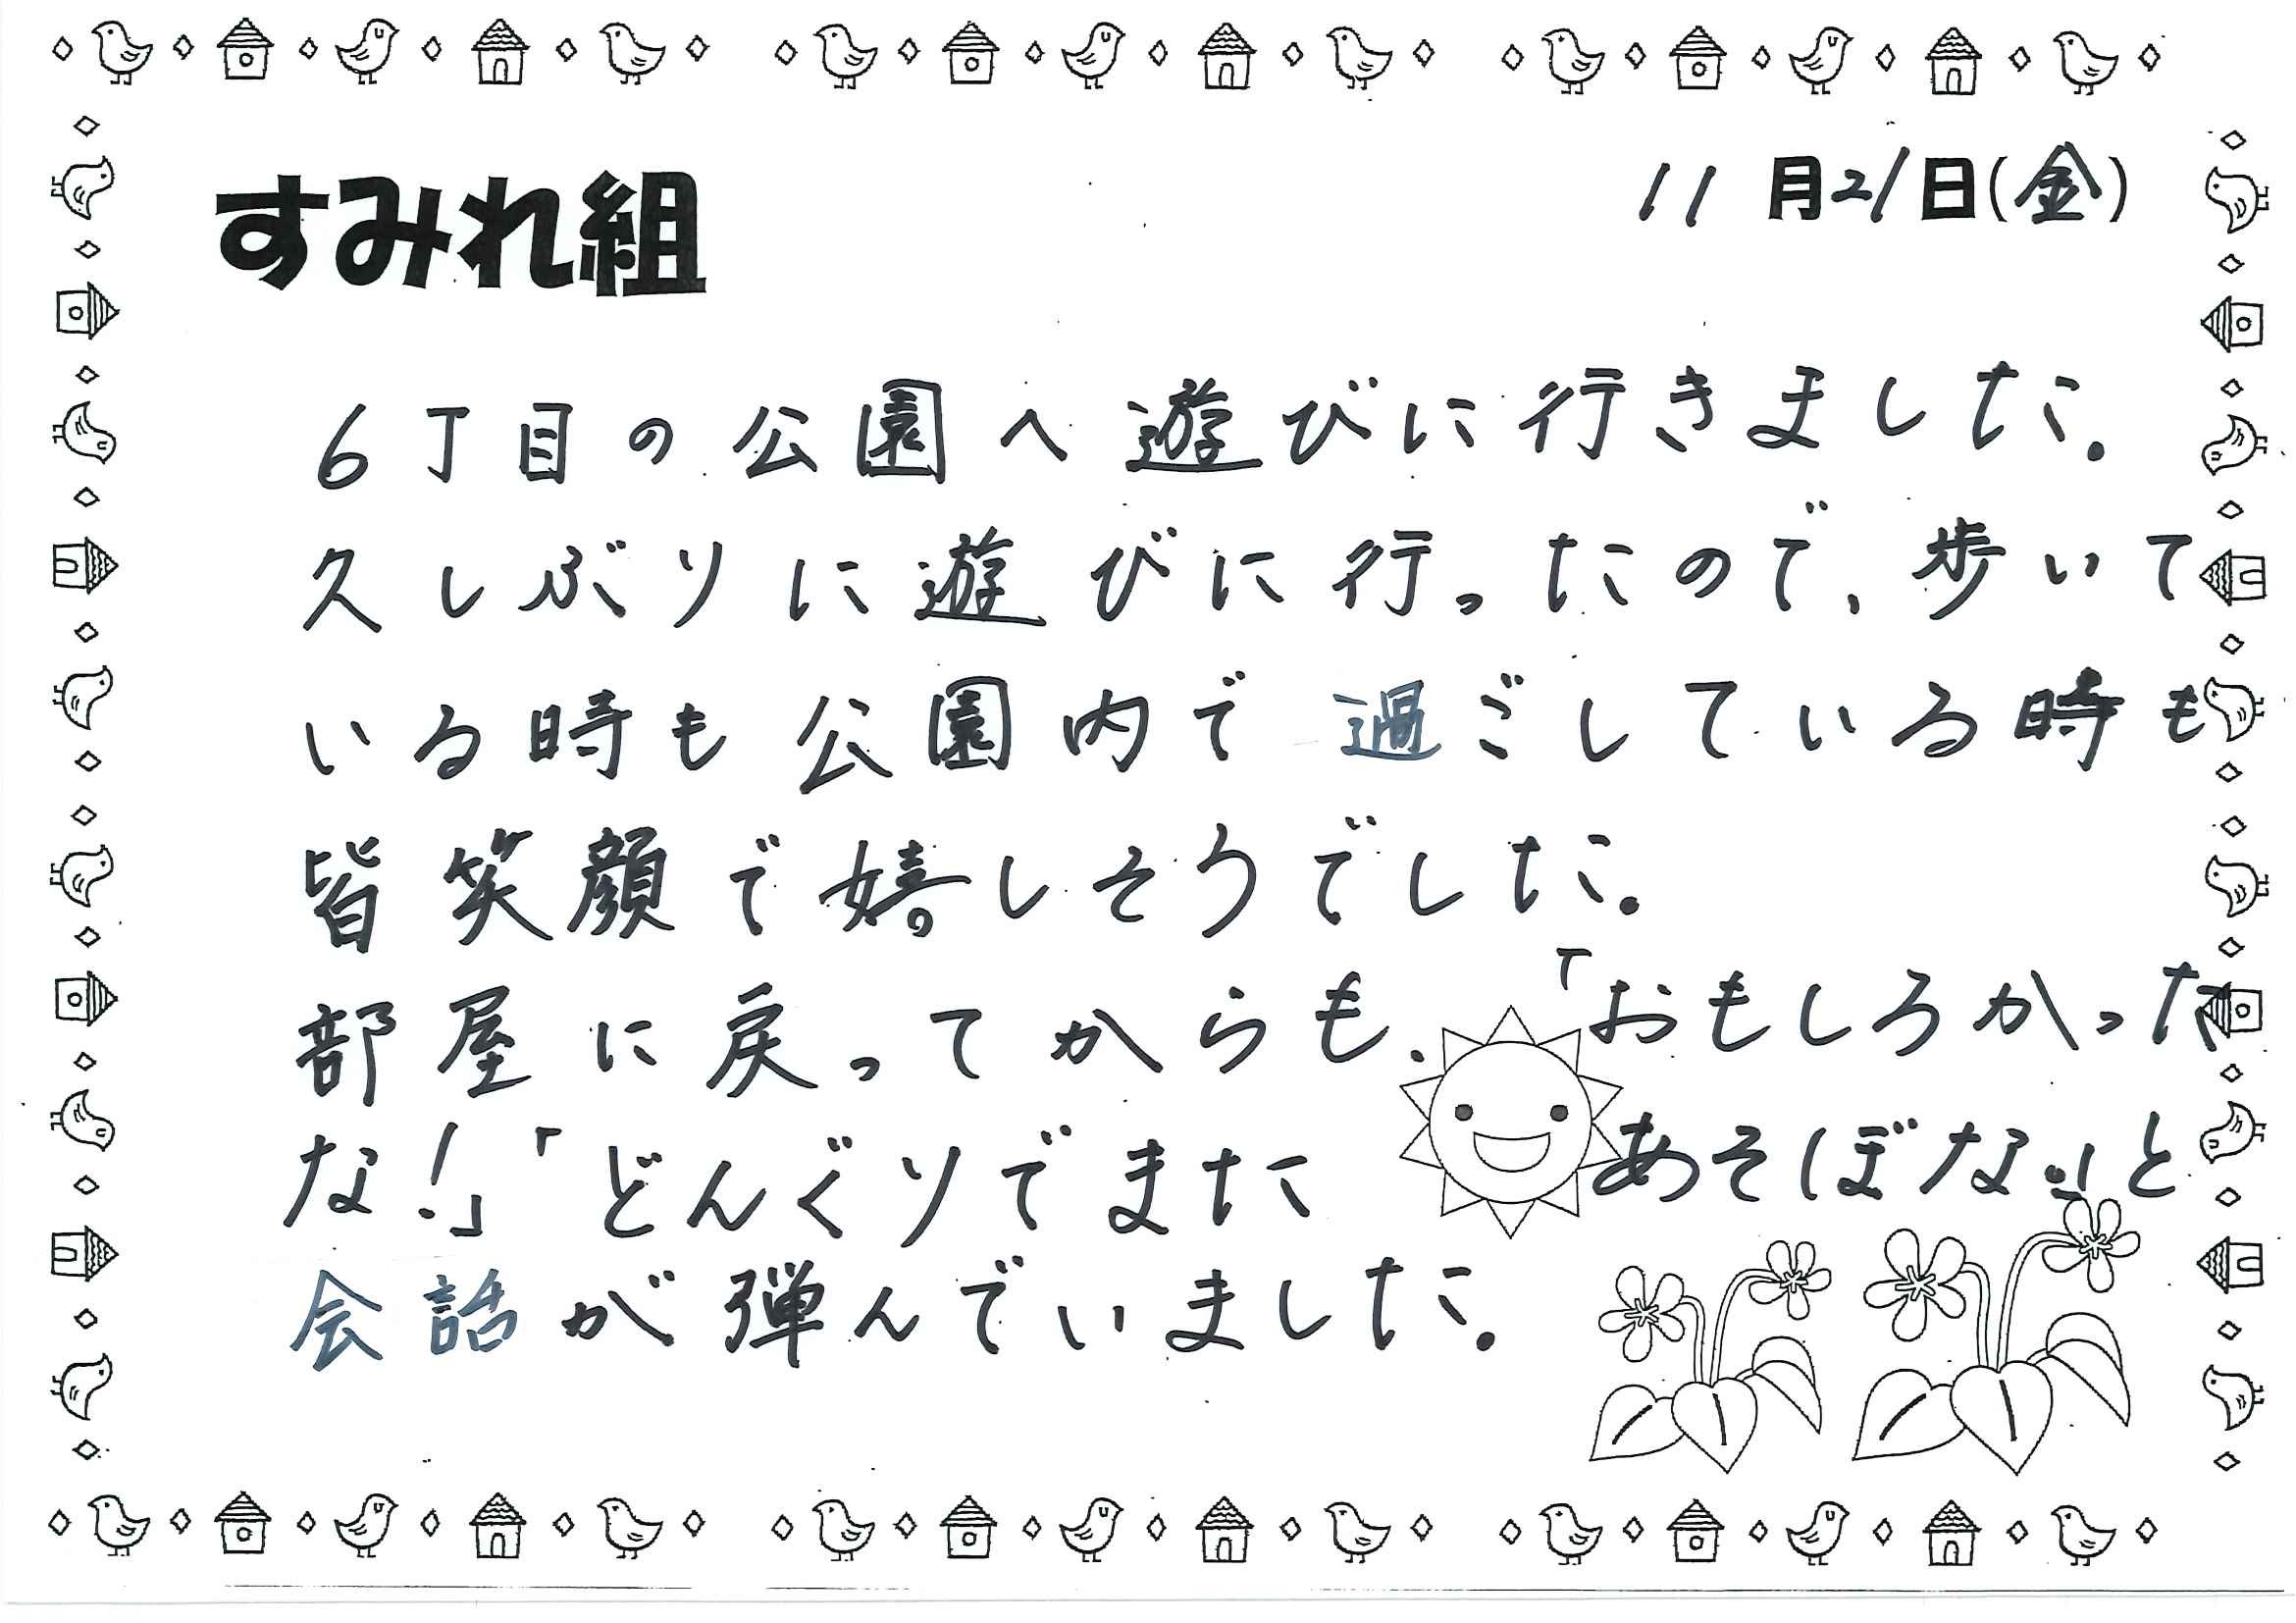 すみれ組
11月21日(金)
6丁目の公園へ遊びに行きました。
久しぶりに遊びに行ったので、歩いて
いる時も公園内で過ごしている時も
皆笑顔で嬉しそうでした。
部屋に戻ってからも、「おもしろかった
な!」「どんぐりでまたあそぼな!」と
会話が弾んでいました。